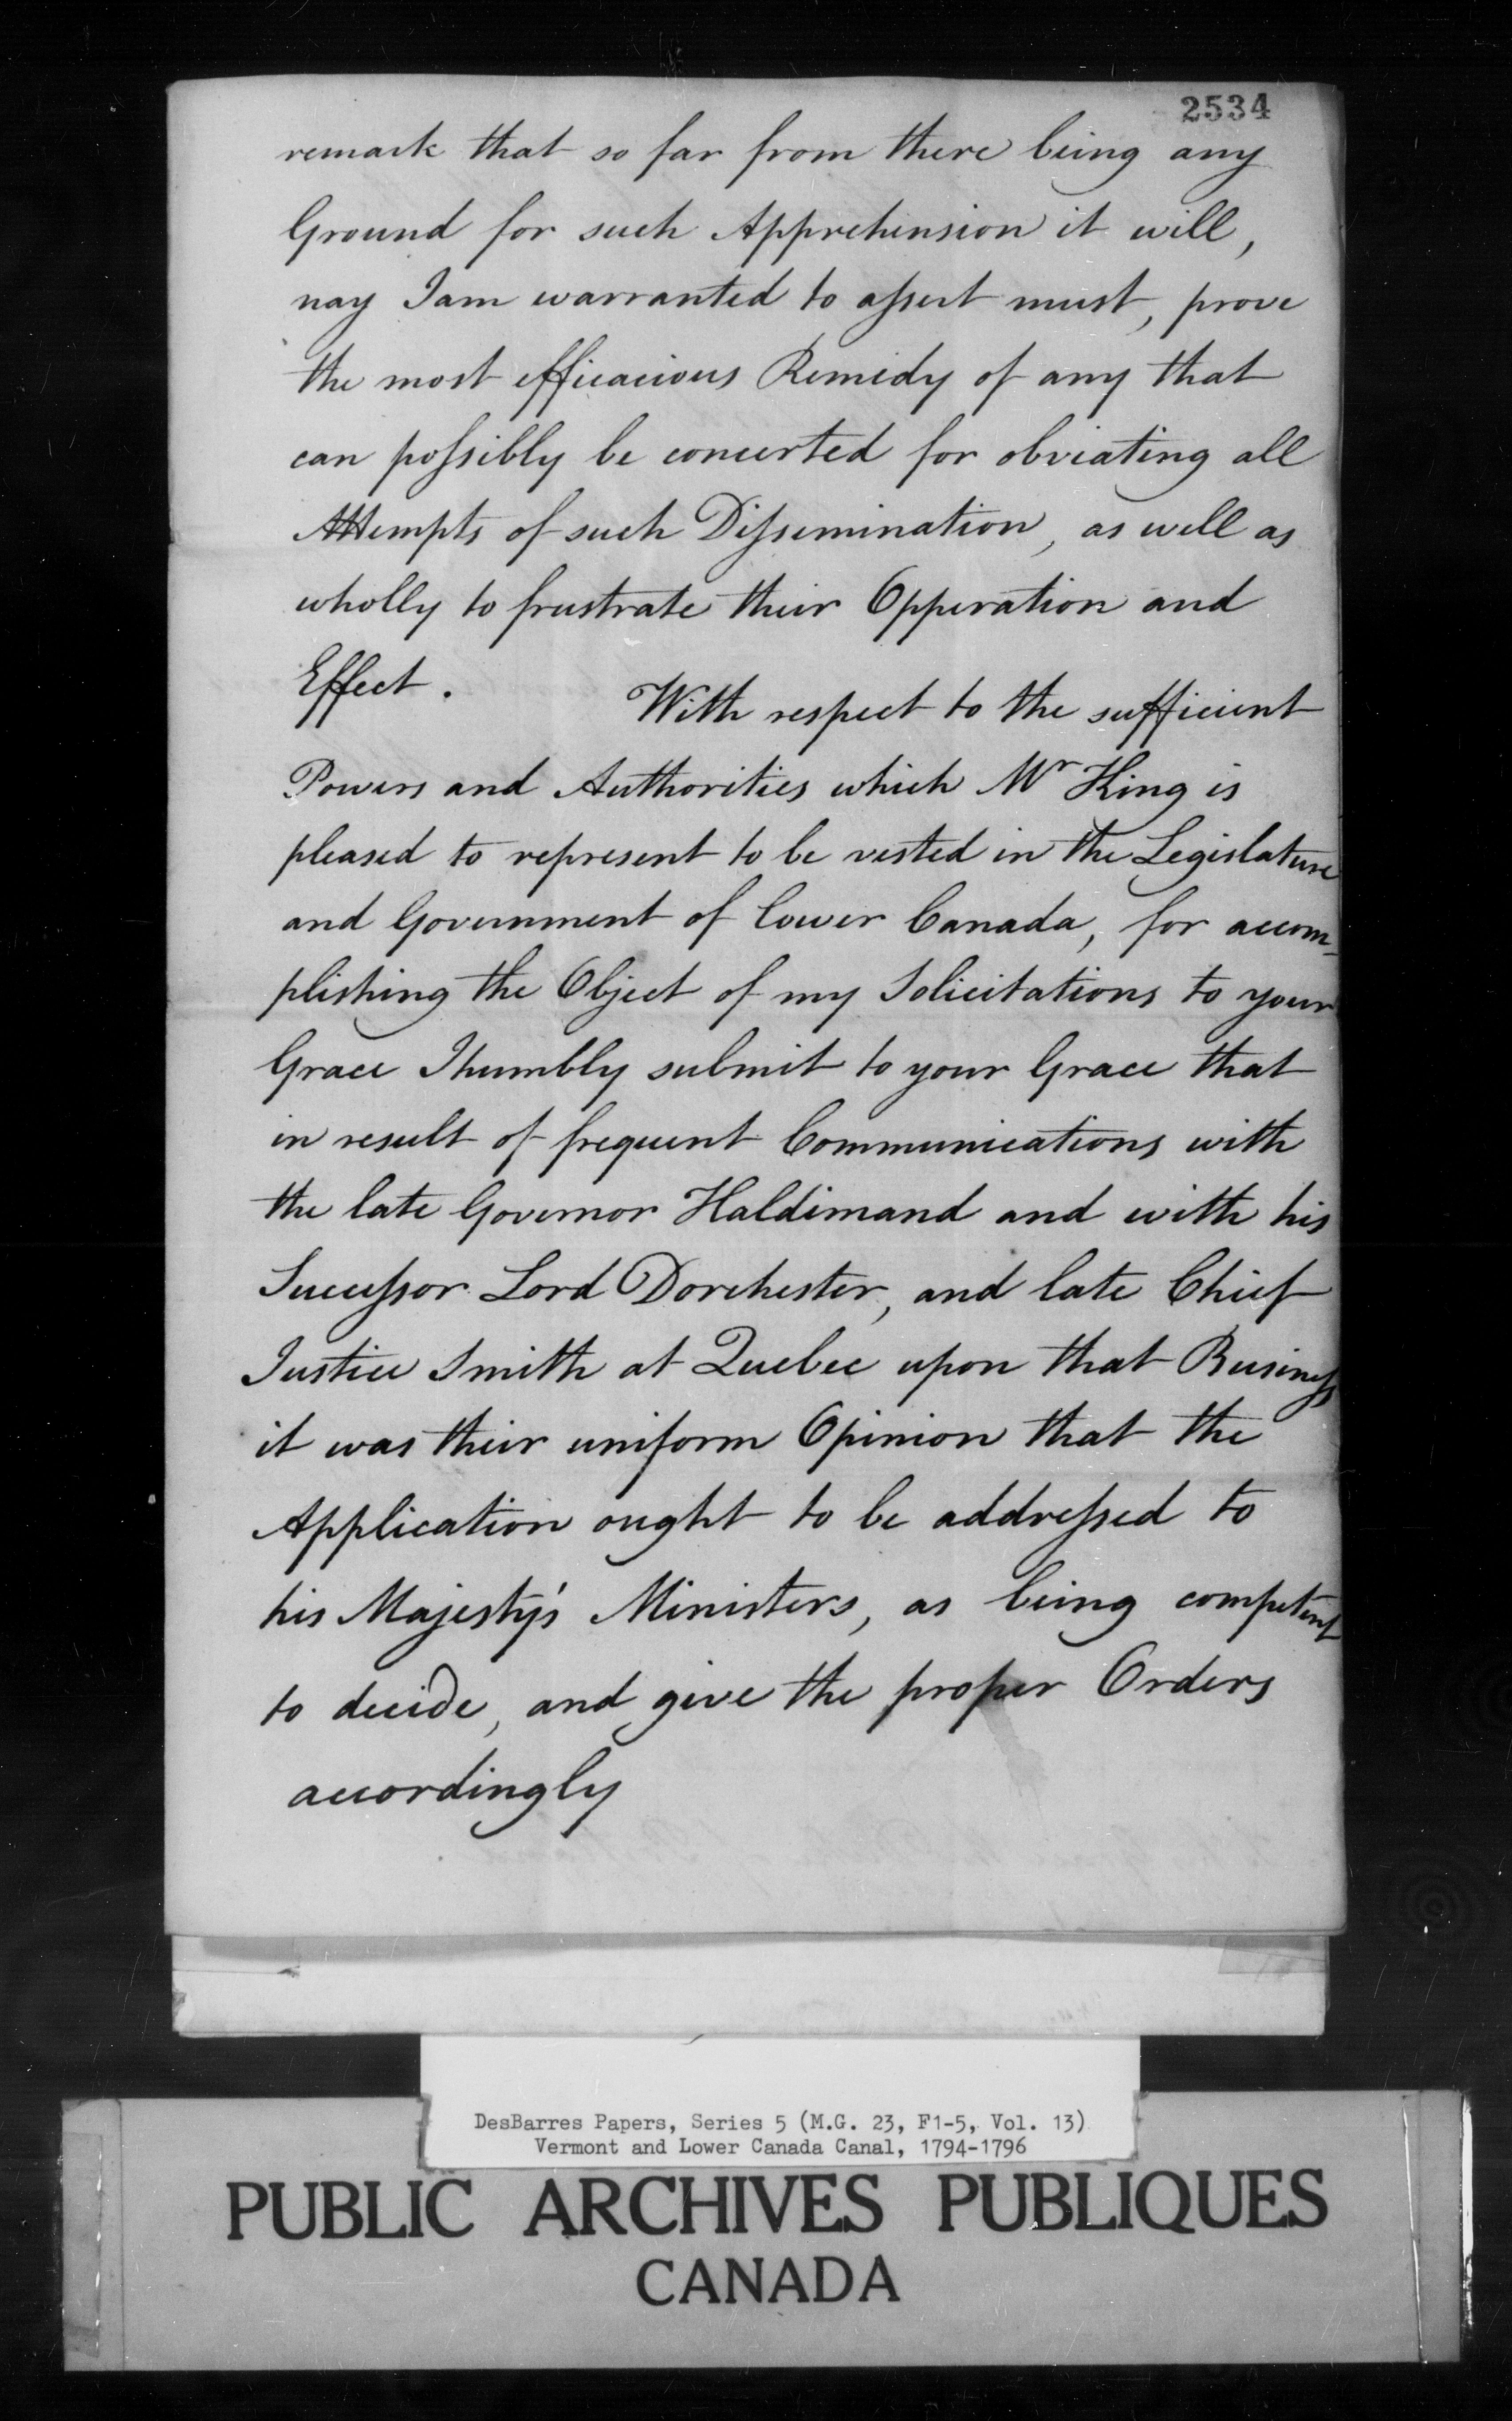 2534
remark that so far from there being any
Ground for such Apprehension it will,
nay I am warranted to assert must, prove
the most efficacious Remedy of any that
can possibly be concerted for obviating all
Attempts of such Dissemination, as well as
wholly to frustrate their Opperation and
Effect.
With respect to the sufficient
Powers and Authorities which Mr King is
pleased to represent to be vested in the Legislature
and Government of Lower Canada, for accom-
plishing the Object of my Solicitations to your
Grace I humbly submit to your Grace that
in result of frequent Communications with
the late Governor Haldimand and with his
Successor Lord Dorchester, and late Chief
Justice Smith at Quebec upon that Business
it was their uniform Opinion that the
Application ought to be addressed to
his Majesty's Ministers, as being competent
to decide, and give the proper Orders
accordingly
DesBarres Papers, Series 5 (M.G. 23, F1-5, Vol. 13)
Vermont and Lower Canada Canal, 1794-1796
PUBLIC ARCHIVES PUBLIQUES
CANADA